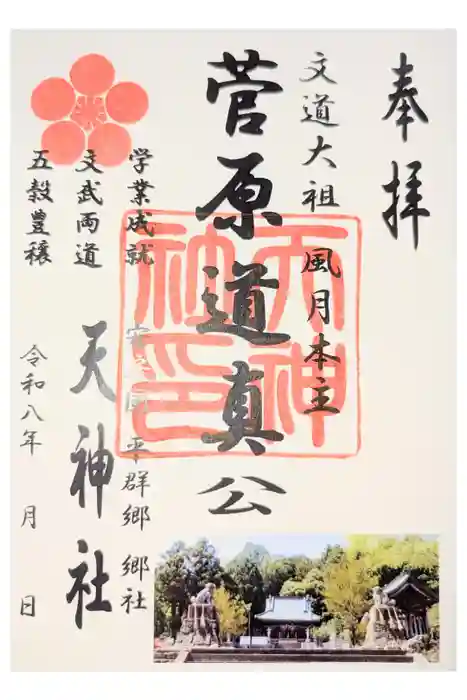 奉拝
文道大祖 風月本主
菅原道真公
学業成就
文武両道
五穀豊穣
安房国 平群郷 郷社
天神社
令和八年 月 日
天神
社印